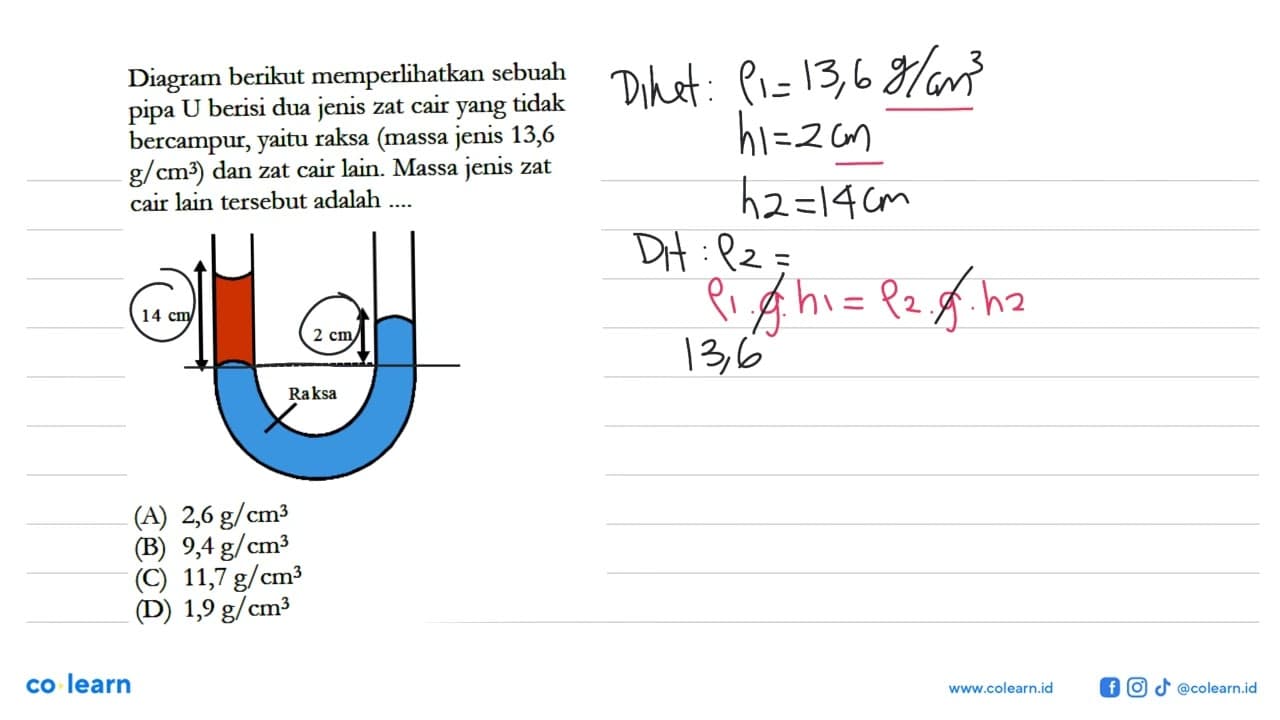 Diagram berikut memperlihatkan sebuah
pipa U berisi dua jenis zat cair yang tidak
bercampur, yaitu raksa (massa jenis 13,6
g/cm³) dan zat cair lain. Massa jenis zat
cair lain tersebut adalah ....
14 cm
2 cm
Raksa
(A) 2,6 g/cm³
(B) 9,4 g/cm³
(C) 11,7 g/cm³
(D) 1,9 g/cm³
Diket: ρ1 = 13,6 g/cm³
h1 = 2 cm
h2 = 14 cm
Dit : ρ2 =
ρ1 . g . h1 = ρ2 . g . h2
13,6
co learn
www.colearn.id
@colearn.id